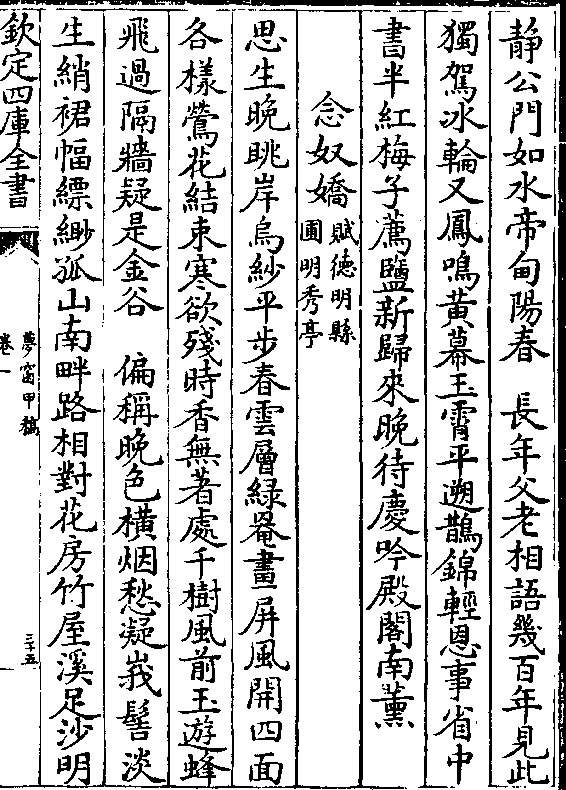 静公門如水帝甸陽春　長年父老相語幾百年見此
獨駕冰輪又鳳鳴黃幕玉霄平遡鵲錦輕恩事省中
書半紅梅子薦鹽新歸來晚待慶吟殿閣南薰
念奴嬌賦德明縣
圃明秀亭
思生晚眺岸烏紗平步春雲層綠罨畫屏風開四面
各樣鶯花結束寒欲殘時香無著處千樹風前玉遊蜂
飛過隔牆疑是金谷　偏稱晚色橫烟愁凝峩髻淡
生綃裙幅縹緲孤山南畔路相對花房竹屋溪足沙明
欽定四庫全書
夢窗甲稿
卷一
三十五